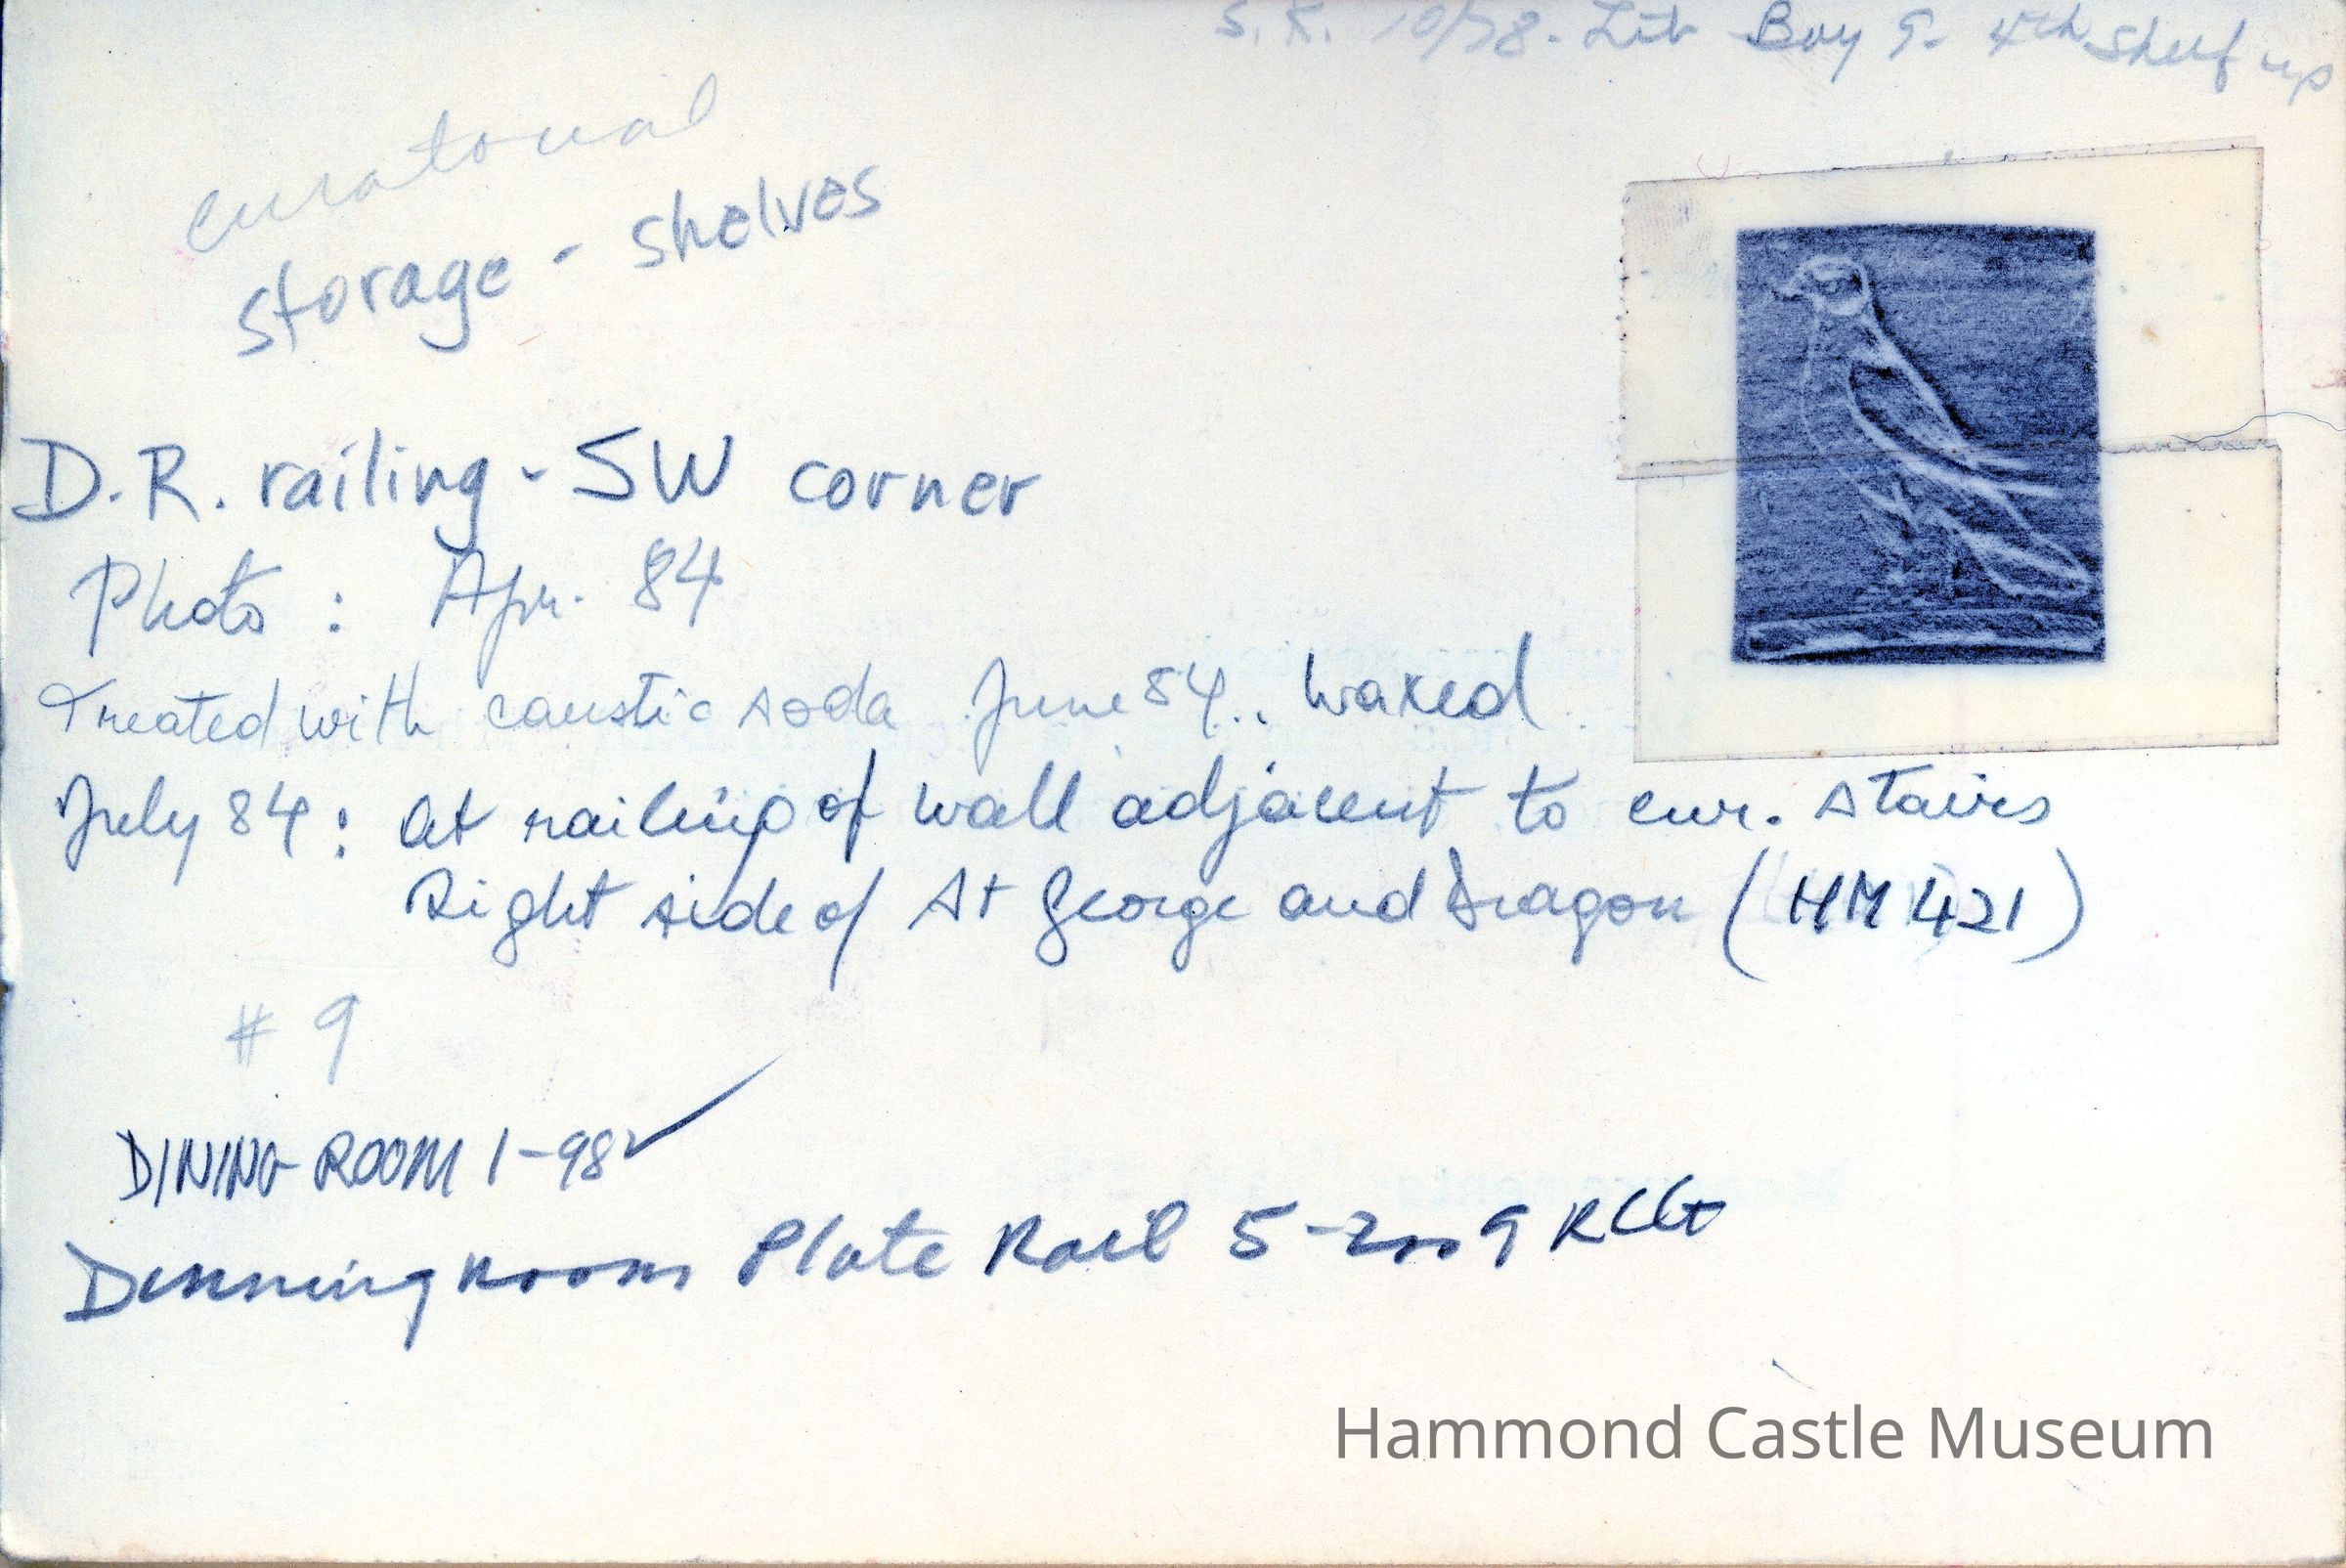 S.K. 10/78. Lib Bay 9. 4th shelf up
curatorial
storage - shelves
D.R. railing - SW corner
Photo : Apr. 84
Treated with caustic soda June 84.. waxed
July 84 : at railing of wall adjacent to cur. stairs
Right side of St George and Dragon (HM 421)
# 9
DINING ROOM 1-98 ✓
Dinning Room Plate Rail 5-2009
Hammond Castle Museum